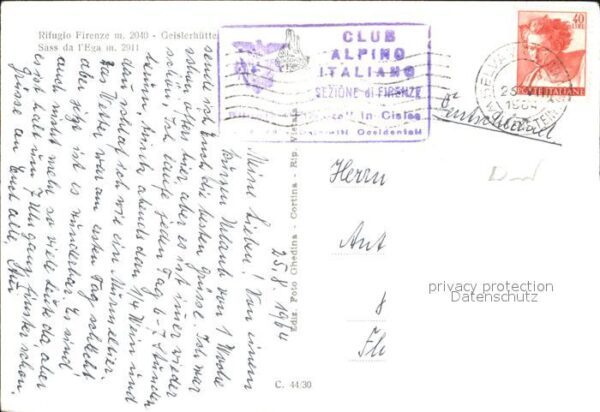 Rifugio Firenze m. 2040 - Geislerhütte
Sass da l'Ega m. 2911
CLUB
ALPINO
ITALIANO
SEZIONE di FIRENZE
in Cisles
Occidentali
40
LIRE
POSTE ITALIANE
25 VIII
1964
Deutschland
25.8.1964
Meine Lieben! Von einem
kurzen Urlaub von 1 Woche
sende ich Euch die besten Grüße. Ich war
schon öfters hier, aber es ist immer wieder
schön. Ich laufe jeden Tag 6-7 Stunden
herum, abends dann 1/4 Wein und
dann schlaf ich wie ein Murmeltier.
Das Wetter war am ersten Tag schlecht
aber jetzt ist es wunderbar. Es sind
auch nicht mehr so viele Leute da, aber
es ist halt um 7 Uhr ganz finster schon.
Grüße an Euch alle,
Ediz. Foto Ghedina - Cortina - Rip. Vietata
C. 44/30
Herrn
Ant
8
Fl
privacy protection
Datenschutz